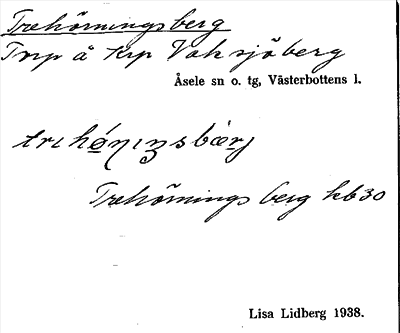 Trehörningsberg
Tnp å krp Vak sjöberg
Åsele sn o. tg, Västerbottens l.
Trehörnings berg hb30
Lisa Lidberg 1938.